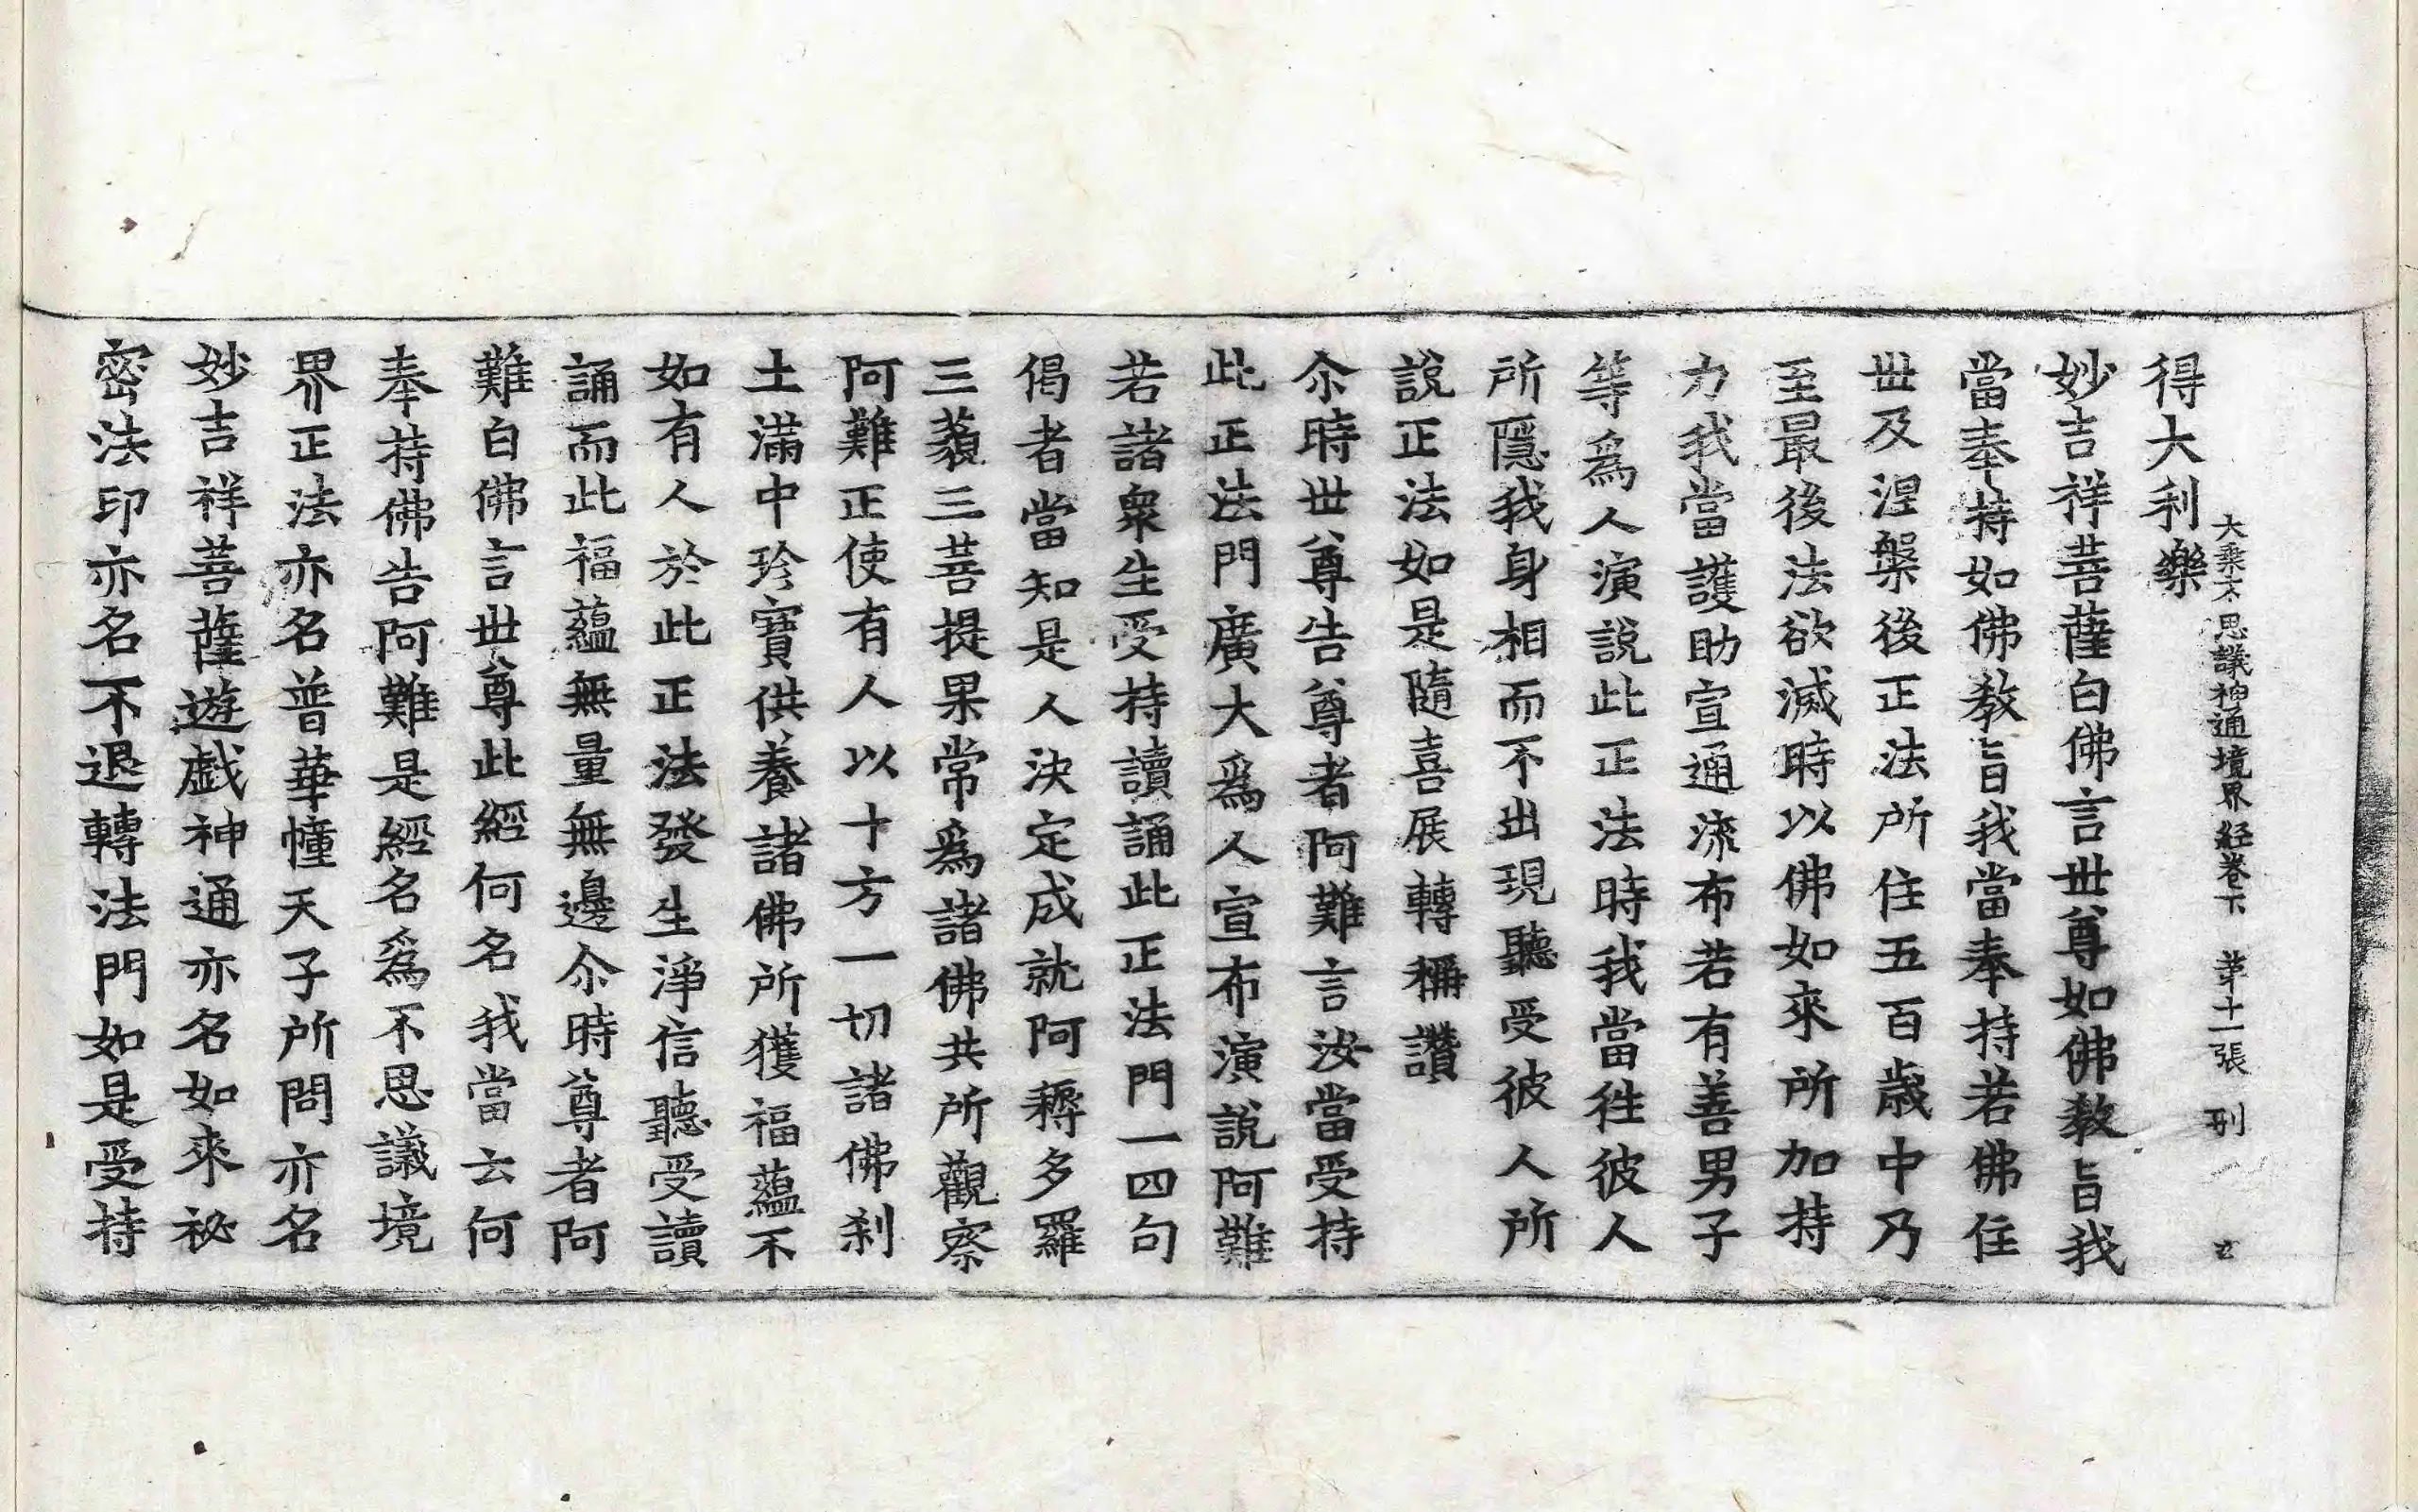 大乗不思議神通境界経卷下　第十一張　刑
得大利樂
妙吉祥菩薩白佛言世尊如佛教旨我
當奉持如佛教旨我當奉持若佛住
世及涅槃後正法所住五百歲中乃
至最後法欲滅時以佛如來所加持
力我當護助宣通流布若有善男子
等爲人演說此正法時我當徃彼人
所隱我身相而不出現聽受彼人所
說正法如是隨喜展轉稱讚
尒時世尊告尊者阿難言汝當受持
此正法門廣大爲人宣布演說阿難
若諸衆生受持讀誦此正法門一四句
偈者當知是人決定成就阿耨多羅
三藐三菩提果常爲諸佛共所觀察
阿難正使有人以十方一切諸佛刹
土滿中珍寶供養諸佛所獲福蘊不
如有人於此正法發生淨信聽受讀
誦而此福蘊無量無邊尒時尊者阿
難白佛言世尊此經何名我當云何
奉持佛告阿難是經名爲不思議境
界正法亦名普華幢天子所問亦名
妙吉祥菩薩遊戯神通亦名如來祕
密法印亦名不退轉法門如是受持